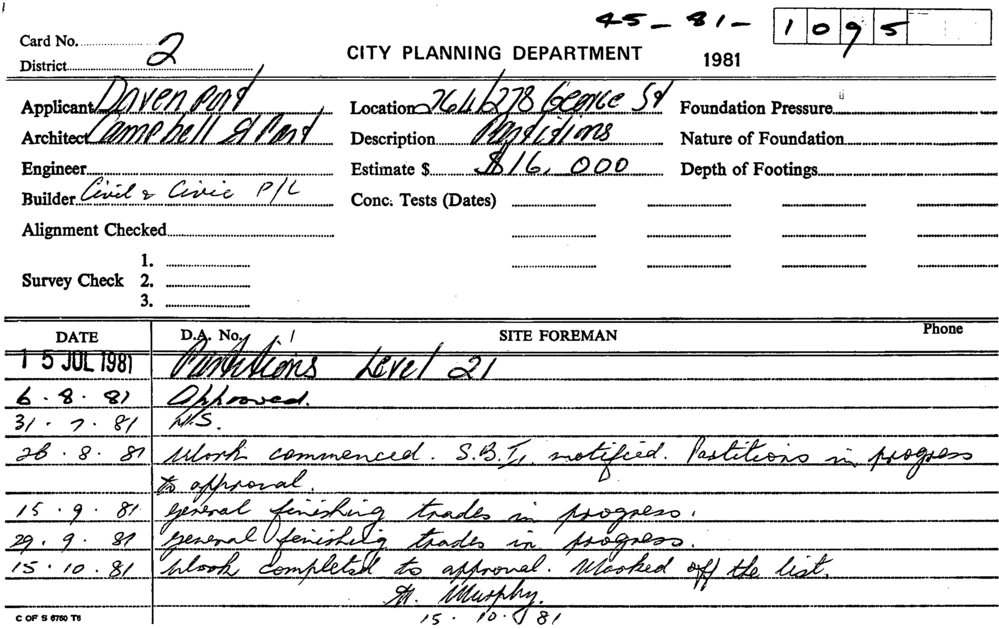 45-81-1095
Card No.
District 2
CITY PLANNING DEPARTMENT 1981
Applicant Davenport Location 264/278 George St Foundation Pressure
Architect Campbell & Part Description Partitions Nature of Foundation
Engineer Estimate $ $16,000 Depth of Footings
Builder Civil & Civic P/L Conc. Tests (Dates)
Alignment Checked
1.
Survey Check 2.
3.
DATE D.A. No. SITE FOREMAN Phone
15 JUL 1981 Partitions Level 21
6.8.81 Approved.
31.7.81 N.S.
26.8.81 Work commenced. S.B.I. notified. Partitions in progress
to approval.
15.9.81 general finishing trades in progress.
29.9.81 general finishing trades in progress.
15.10.81 Work completed to approval. Marked off the list.
Murphy.
C OF S 6750 T6 15.10.81